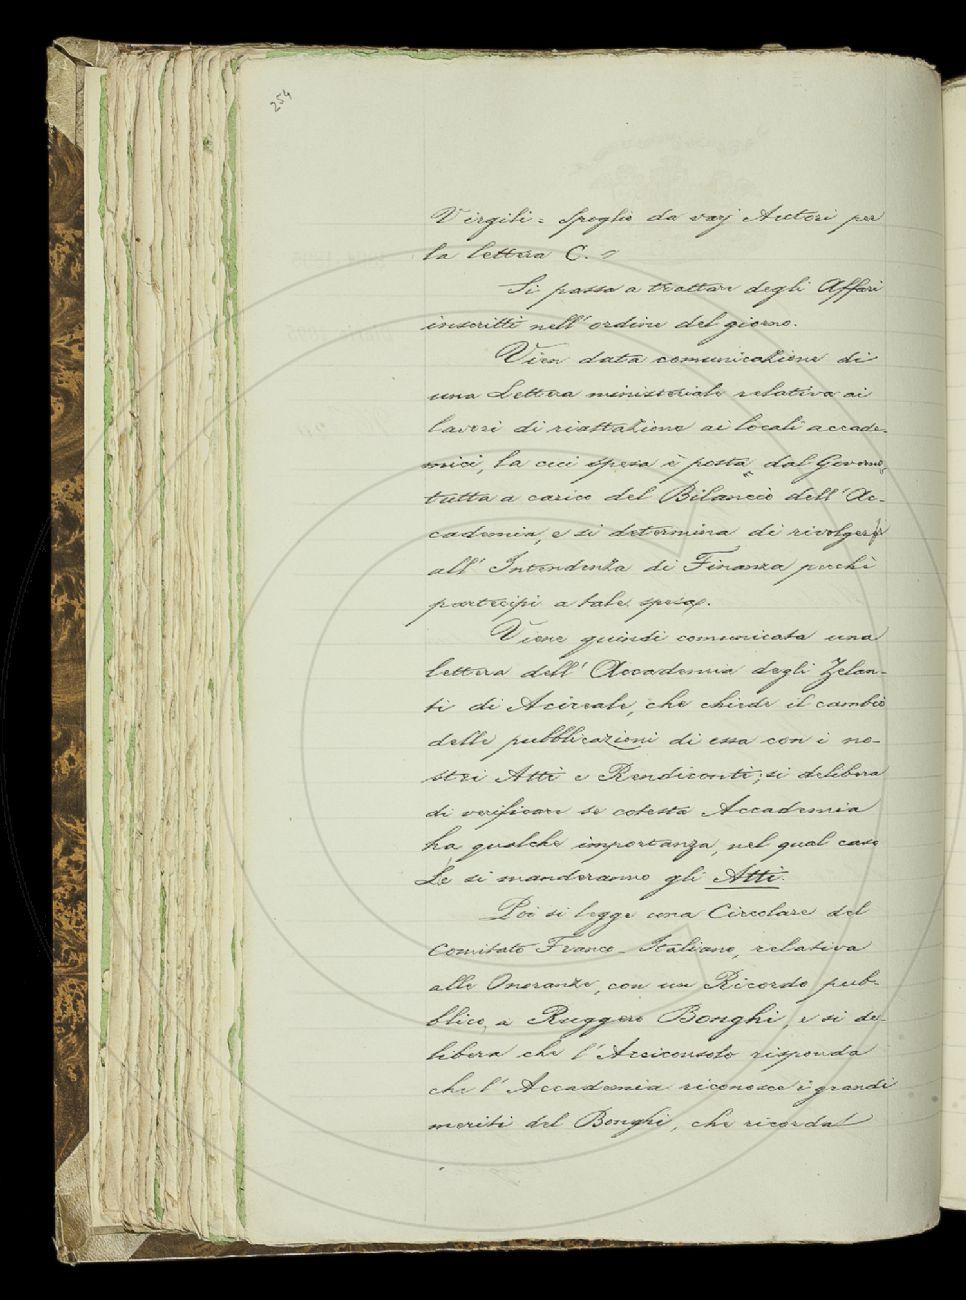 254
Virgili = Spoglio da varj Autori per
la lettera C. =
Si passa a trattare degli Affari
inscritti nell' ordine del giorno.
Vien data comunicazione di
una Lettera ministeriale relativa ai
lavori di riattazione ai locali accade-
mici, la cui spesa è posta dal Governo,
tutta a carico del Bilancio dell' Ac-
cademia, e si determina di rivolgersi
all' Intendenza di Finanza perchè
partecipi a tale spesa.
Viene quindi comunicata una
lettera dell' Accademia degli Zelan-
ti di Acireale, che chiede il cambio
delle pubblicazioni di essa con i no-
stri Atti e Rendiconti; si delibera
di verificare se cotesta Accademia
ha qualche importanza, nel qual caso
Le si manderanno gli Atti.
Poi si legge una Circolare del
Comitato Franco-Italiano, relativa
alle Onoranze, con un Ricordo pub-
blico, a Ruggero Bonghi, e si de-
libera che l' Arciconsolo risponda
che l' Accademia riconosce i grandi
meriti del Bonghi, che ricorda